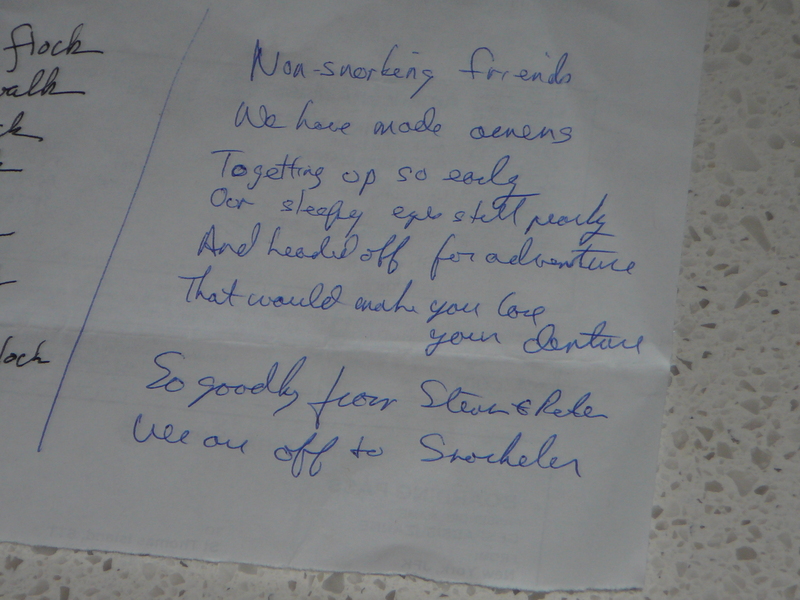 flock
walk
ck
lock
Non-snorkeling friends
We have made amens
To getting up so early
Our sleepy eyes still pearly
And headed off for adventure
That would make you lose
your denture
So goodby from Steven &
We are off to Snorkeler